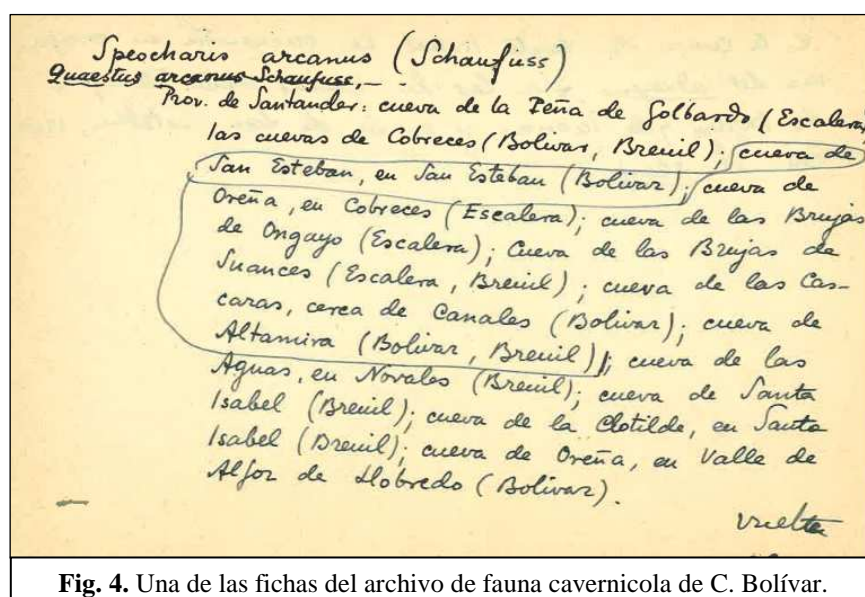 Speocharis arcanus (Schaufuss)
Quaestus arcanus Schaufuss,—
Prov. de Santander: cueva de la Peña de Golbardo (Escalera)
las cuevas de Cobreces (Bolivar, Breuil); cueva de
San Esteban, en San Esteban (Bolivar); cueva de
Oreña, en Cobreces (Escalera); cueva de las Brujas
de Ongayo (Escalera); Cueva de las Brujas de
Suances (Escalera, Breuil); cueva de las Cas-
caras, cerca de Canales (Bolivar); cueva de
Altamira (Bolivar, Breuil); cueva de las
Aguas, en Novales (Breuil); cueva de Santa
Isabel (Breuil); cueva de la Clotilde, en Santa
Isabel (Breuil); cueva de Oreña, en Valle de
Alfoz de Llobredo (Bolivar).
vuelta
Fig. 4. Una de las fichas del archivo de fauna cavernicola de C. Bolívar.